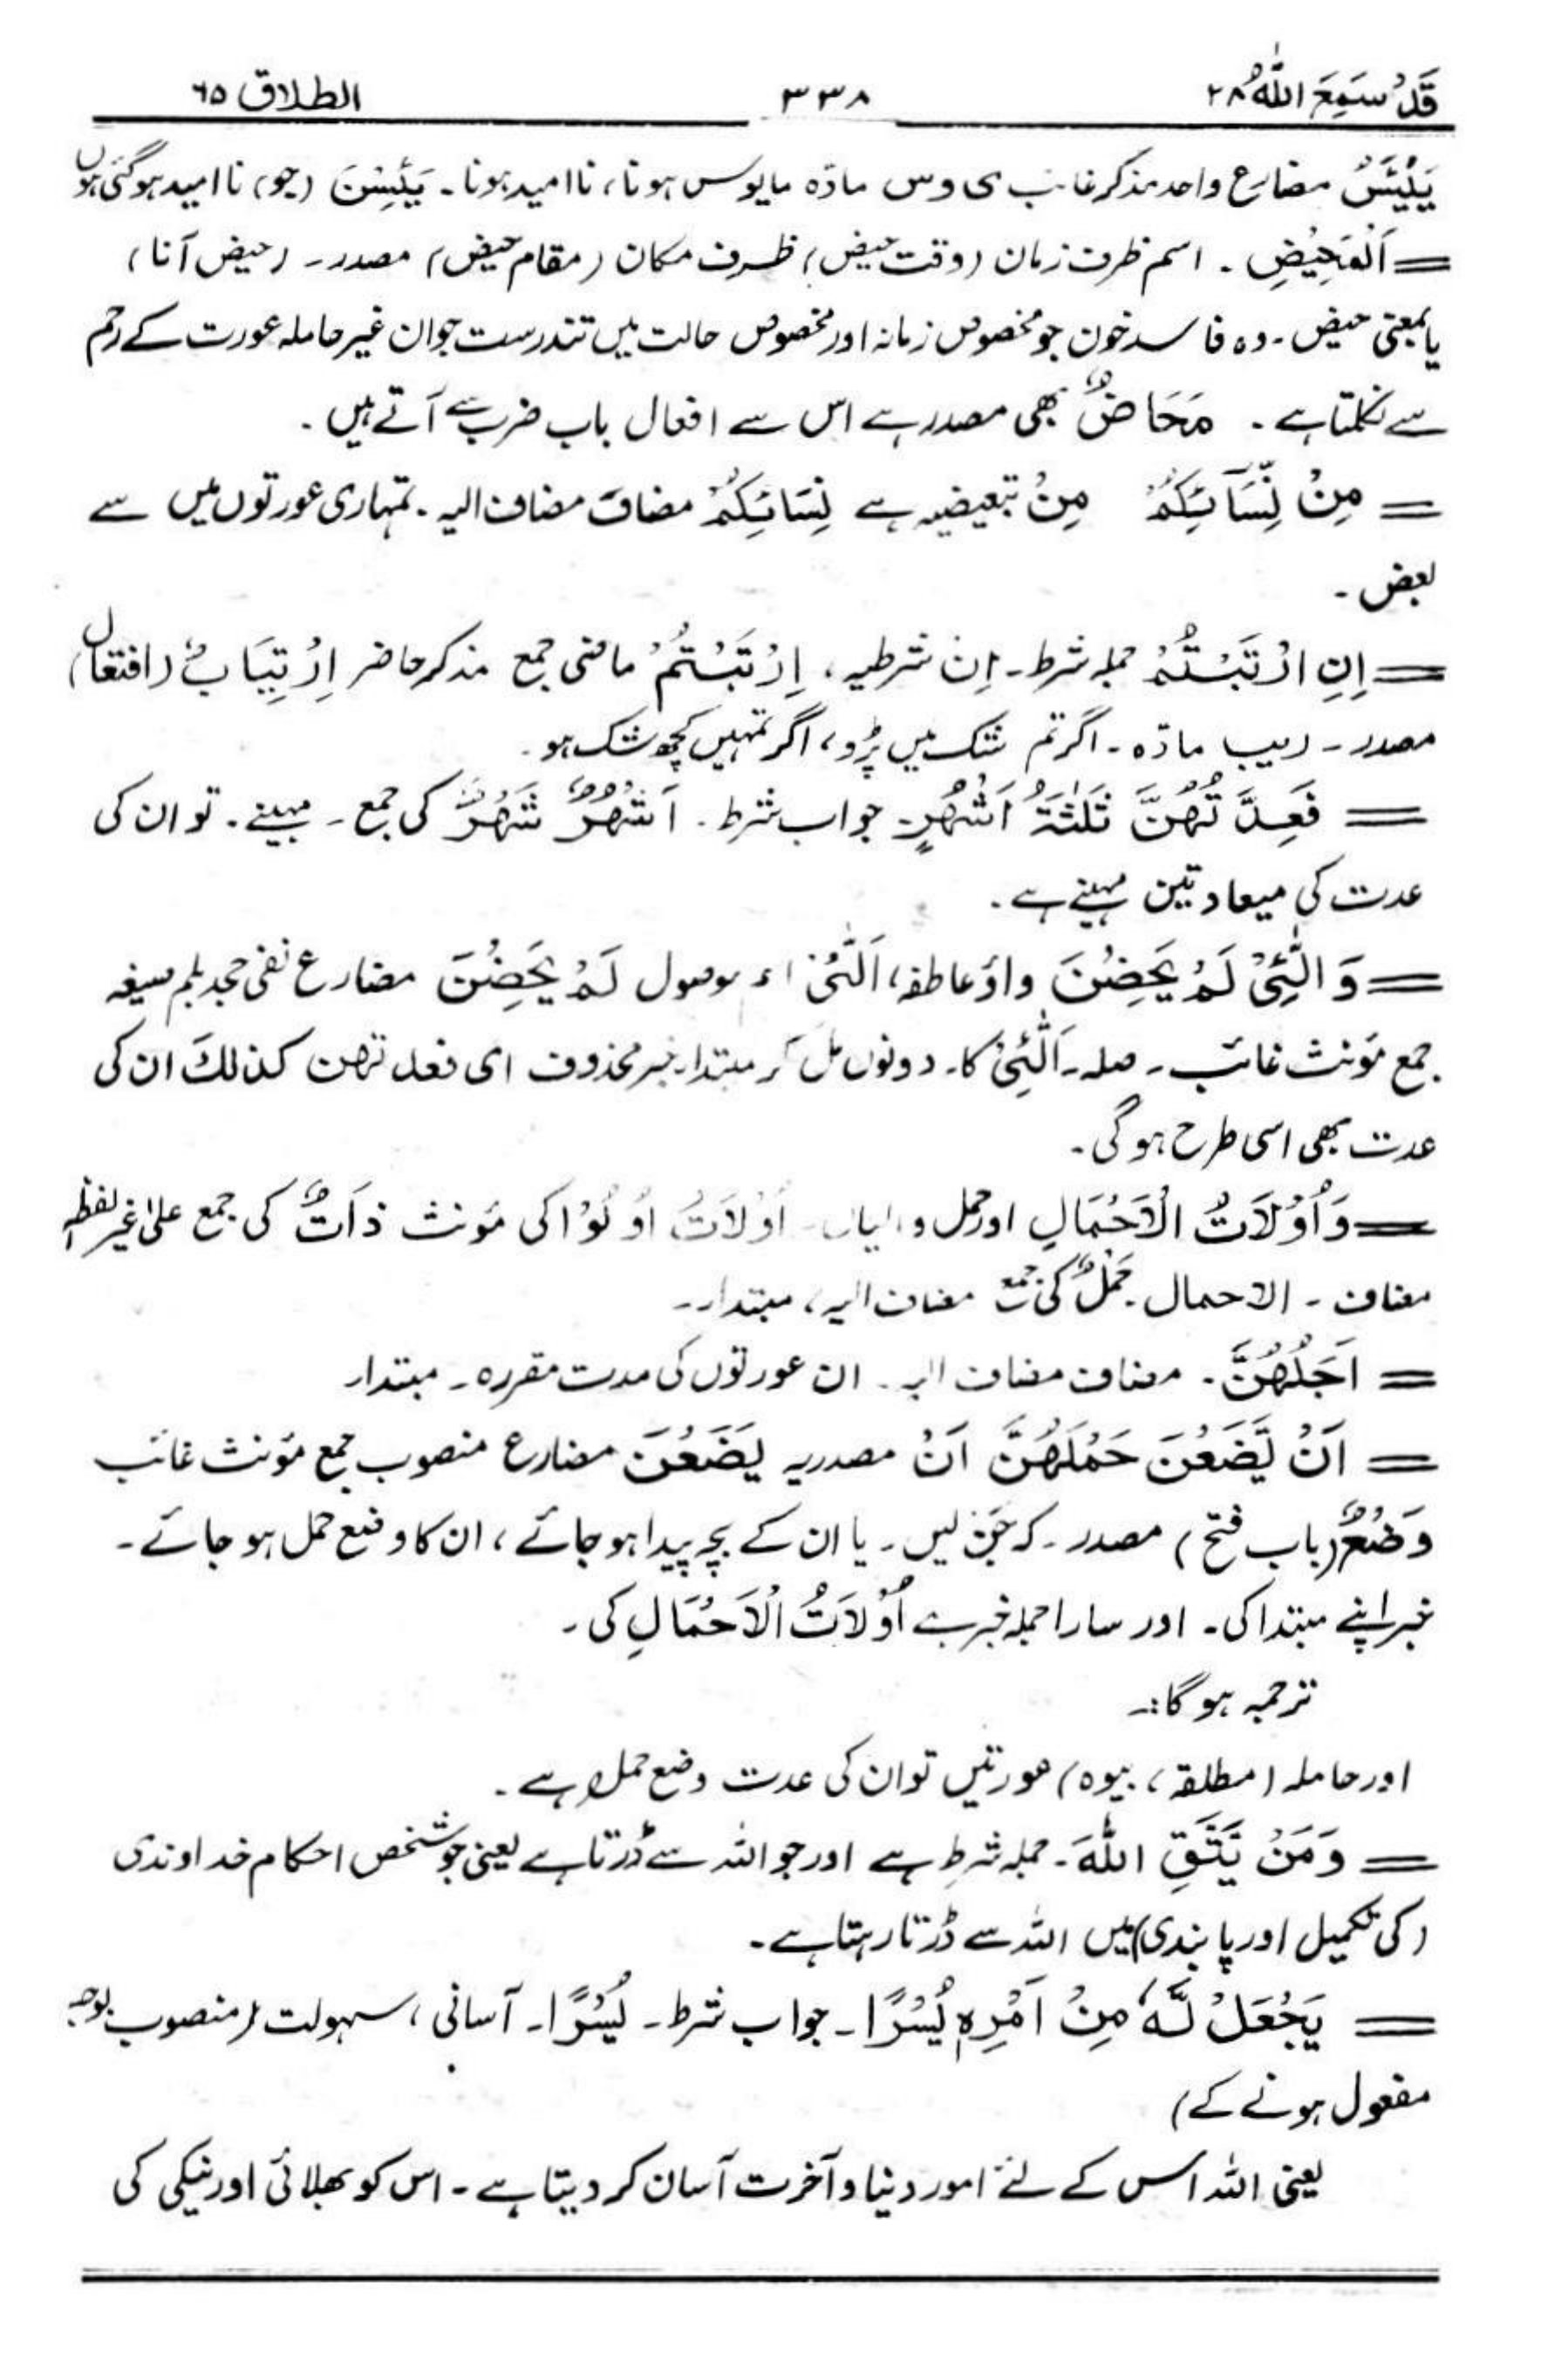 قَدْ سَمِعَ اللّٰهُ ۲۸ ۳۳۸ الطلاق ۶۵
يَيْئَسُ مضارع واحد مذکر غائب ی و س مادّہ مایوس ہونا، ناامید ہونا۔ يَئِسْنَ (جو) ناامید ہوگئی ہوں
= اَلْمَحِيْضِ ۔ اسم ظرف زمان (وقت حیض) ظرف مکان (مقام حیض) مصدر۔ (حیض آنا)
یا بمعنی حیض۔ وہ فاسد خون جو مخصوص زمانہ اور مخصوص حالت میں تندرست جوان غیر حاملہ عورت کے رحم
سے نکلتا ہے ۔ مَحَاضٌ بھی مصدر ہے اس سے افعال باب ضرب سے آتے ہیں ۔
= مِنْ نِّسَآئِكُمْ مِنْ تبعیضیہ ہے نِسَائِكُمْ مضاف مضاف الیہ ۔ تمہاری عورتوں میں سے
بعض ۔
= اِنِ ارْتَبْتُمْ جملہ شرط۔ اِنْ شرطیہ ، اِرْتَبْتُمْ ماضی جمع مذکر حاضر اِرْتِيَابٌ (افتعال)
مصدر ۔ ریب مادّہ ۔ اگر تم شک میں پڑو، اگر تمہیں کچھ شک ہو ۔
= فَعِدَّ تُهُنَّ ثَلٰثَةُ اَشْهُرٍ۔ جواب شرط ۔ اَشْهُرٌ شَهْرٌ کی جمع ۔ مہینے ۔ تو ان کی
عدت کی میعاد تین مہینے ہے ۔
= وَ الّٰۤئِیْ لَمْ يَحِضْنَ واؤ عاطفہ، اَلّٰئِیْ موصول لَمْ يَحِضْنَ مضارع نفی جحد بلم صیغہ
جمع مؤنث غائب ۔ صلہ ۔ اَلّٰئِیْ کا۔ دونوں مل کر مبتدا۔ خبر محذوف ای فعد تھن کذلك ان کی
عدت بھی اسی طرح ہوگی ۔
= وَ اُوْلَاتُ الْاَحْمَالِ اور حمل والیاں ۔ اُوْلَاتُ اُولُوْا کی مؤنث ذَاتٌ کی جمع علیٰ غیر لفظہ
مضاف ۔ الاحمال ۔ حَمْلٌ کی جمع مضاف الیہ ، مبتدا۔
= اَجَلُهُنَّ ۔ مضاف مضاف الیہ ۔ ان عورتوں کی مدت مقررہ ۔ مبتدا
= اَنْ يَّضَعْنَ حَمْلَهُنَّ اَنْ مصدریہ يَضَعْنَ مضارع منصوب جمع مؤنث غائب
وَضْعٌ (باب فتح) مصدر ۔ کہ جَن لیں ۔ یا ان کے بچہ پیدا ہو جائے ، ان کا وضع حمل ہو جائے ۔
خبر اپنے مبتدا کی ۔ اور سارا جملہ خبر ہے اُوْلَاتُ الْاَحْمَالِ کی ۔
ترجمہ ہوگا :۔
اور حاملہ (مطلقہ ، بیوہ) عورتیں تو ان کی عدت وضع حمل ہے ۔
= وَ مَنْ يَّتَّقِ اللّٰهَ ۔ جملہ شرط ہے اور جو اللہ سے ڈرتا ہے یعنی جو شخص احکام خداوندی
(کی تکمیل اور پابندی) میں اللہ سے ڈرتا رہتا ہے ۔
= يَجْعَلْ لَّهٗ مِنْ اَمْرِهٖ يُسْرًا ۔ جواب شرط ۔ يُسْرًا۔ آسانی ، سہولت (منصوب بوجہ
مفعول ہونے کے)
یعنی اللہ اس کے لئے امور دنیا و آخرت آسان کر دیتا ہے ۔ اس کو بھلائی اور نیکی کی